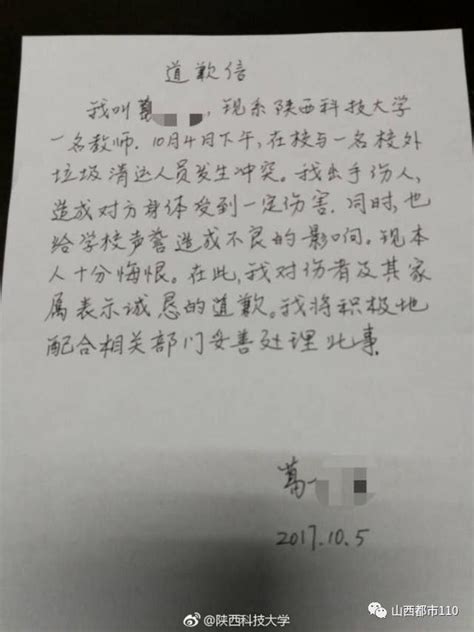 道歉信
我叫葛，现系陕西科技大学
一名教师．10月4日下午，在校与一名校外
垃圾清运人员发生冲突。我出手伤人，
造成对方身体受到一定伤害．同时，也
给学校声誉造成不良的影响。现本
人十分悔恨。在此，我对伤者及其家
属表示诚恳的道歉。我将积极地
配合相关部门妥善处理此事．
葛
2017.10.5
@陕西科技大学
山西都市110